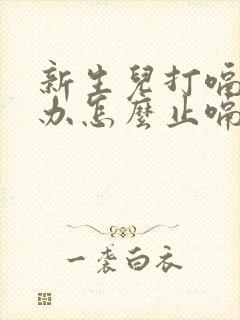 新生兒打嗝
办怎麼止嗝
一袭白衣